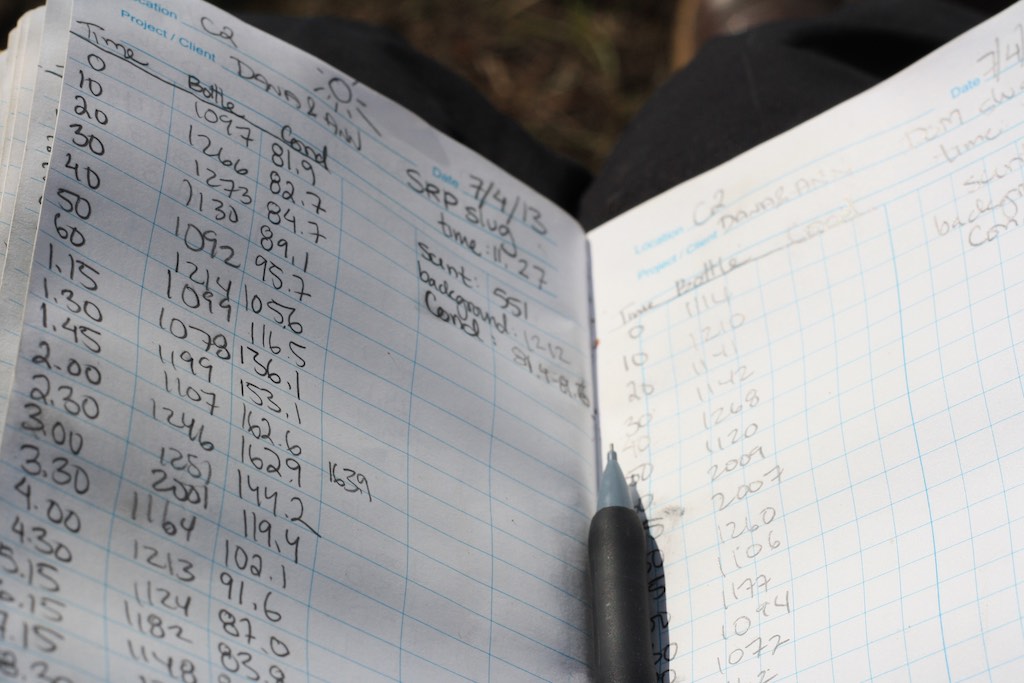 Location C2
Project / Client DANA & ANN
Date 7/4/13
SRP slug
time: 11:27
Sent: 551
background: 1212
Cond:
Time Bottle Cond
0 1097 81.9
10 1266 82.7
20 1273 84.7
30 1130 89.1
40 1092 95.7
50 1214 105.6
60 1099 116.5
1.15 1078 136.1
1.30 1199 153.1
1.45 1107 162.6
2.00 1246 162.9 163.9
2.30 1251 144.2
3.00 2001 119.4
3.30 1164 102.1
4.00 1213 91.6
4.30 1124 87.0
5.15 1182 83.9
6.15 1148
7.15
Location C2
Project / Client DANA & ANN
Date 7/4
time:
Time Bottle Cond
0 1114
10 1210
20 1141
30 1142
1268
1120
2009
2007
1260
1106
1177
1094
1072